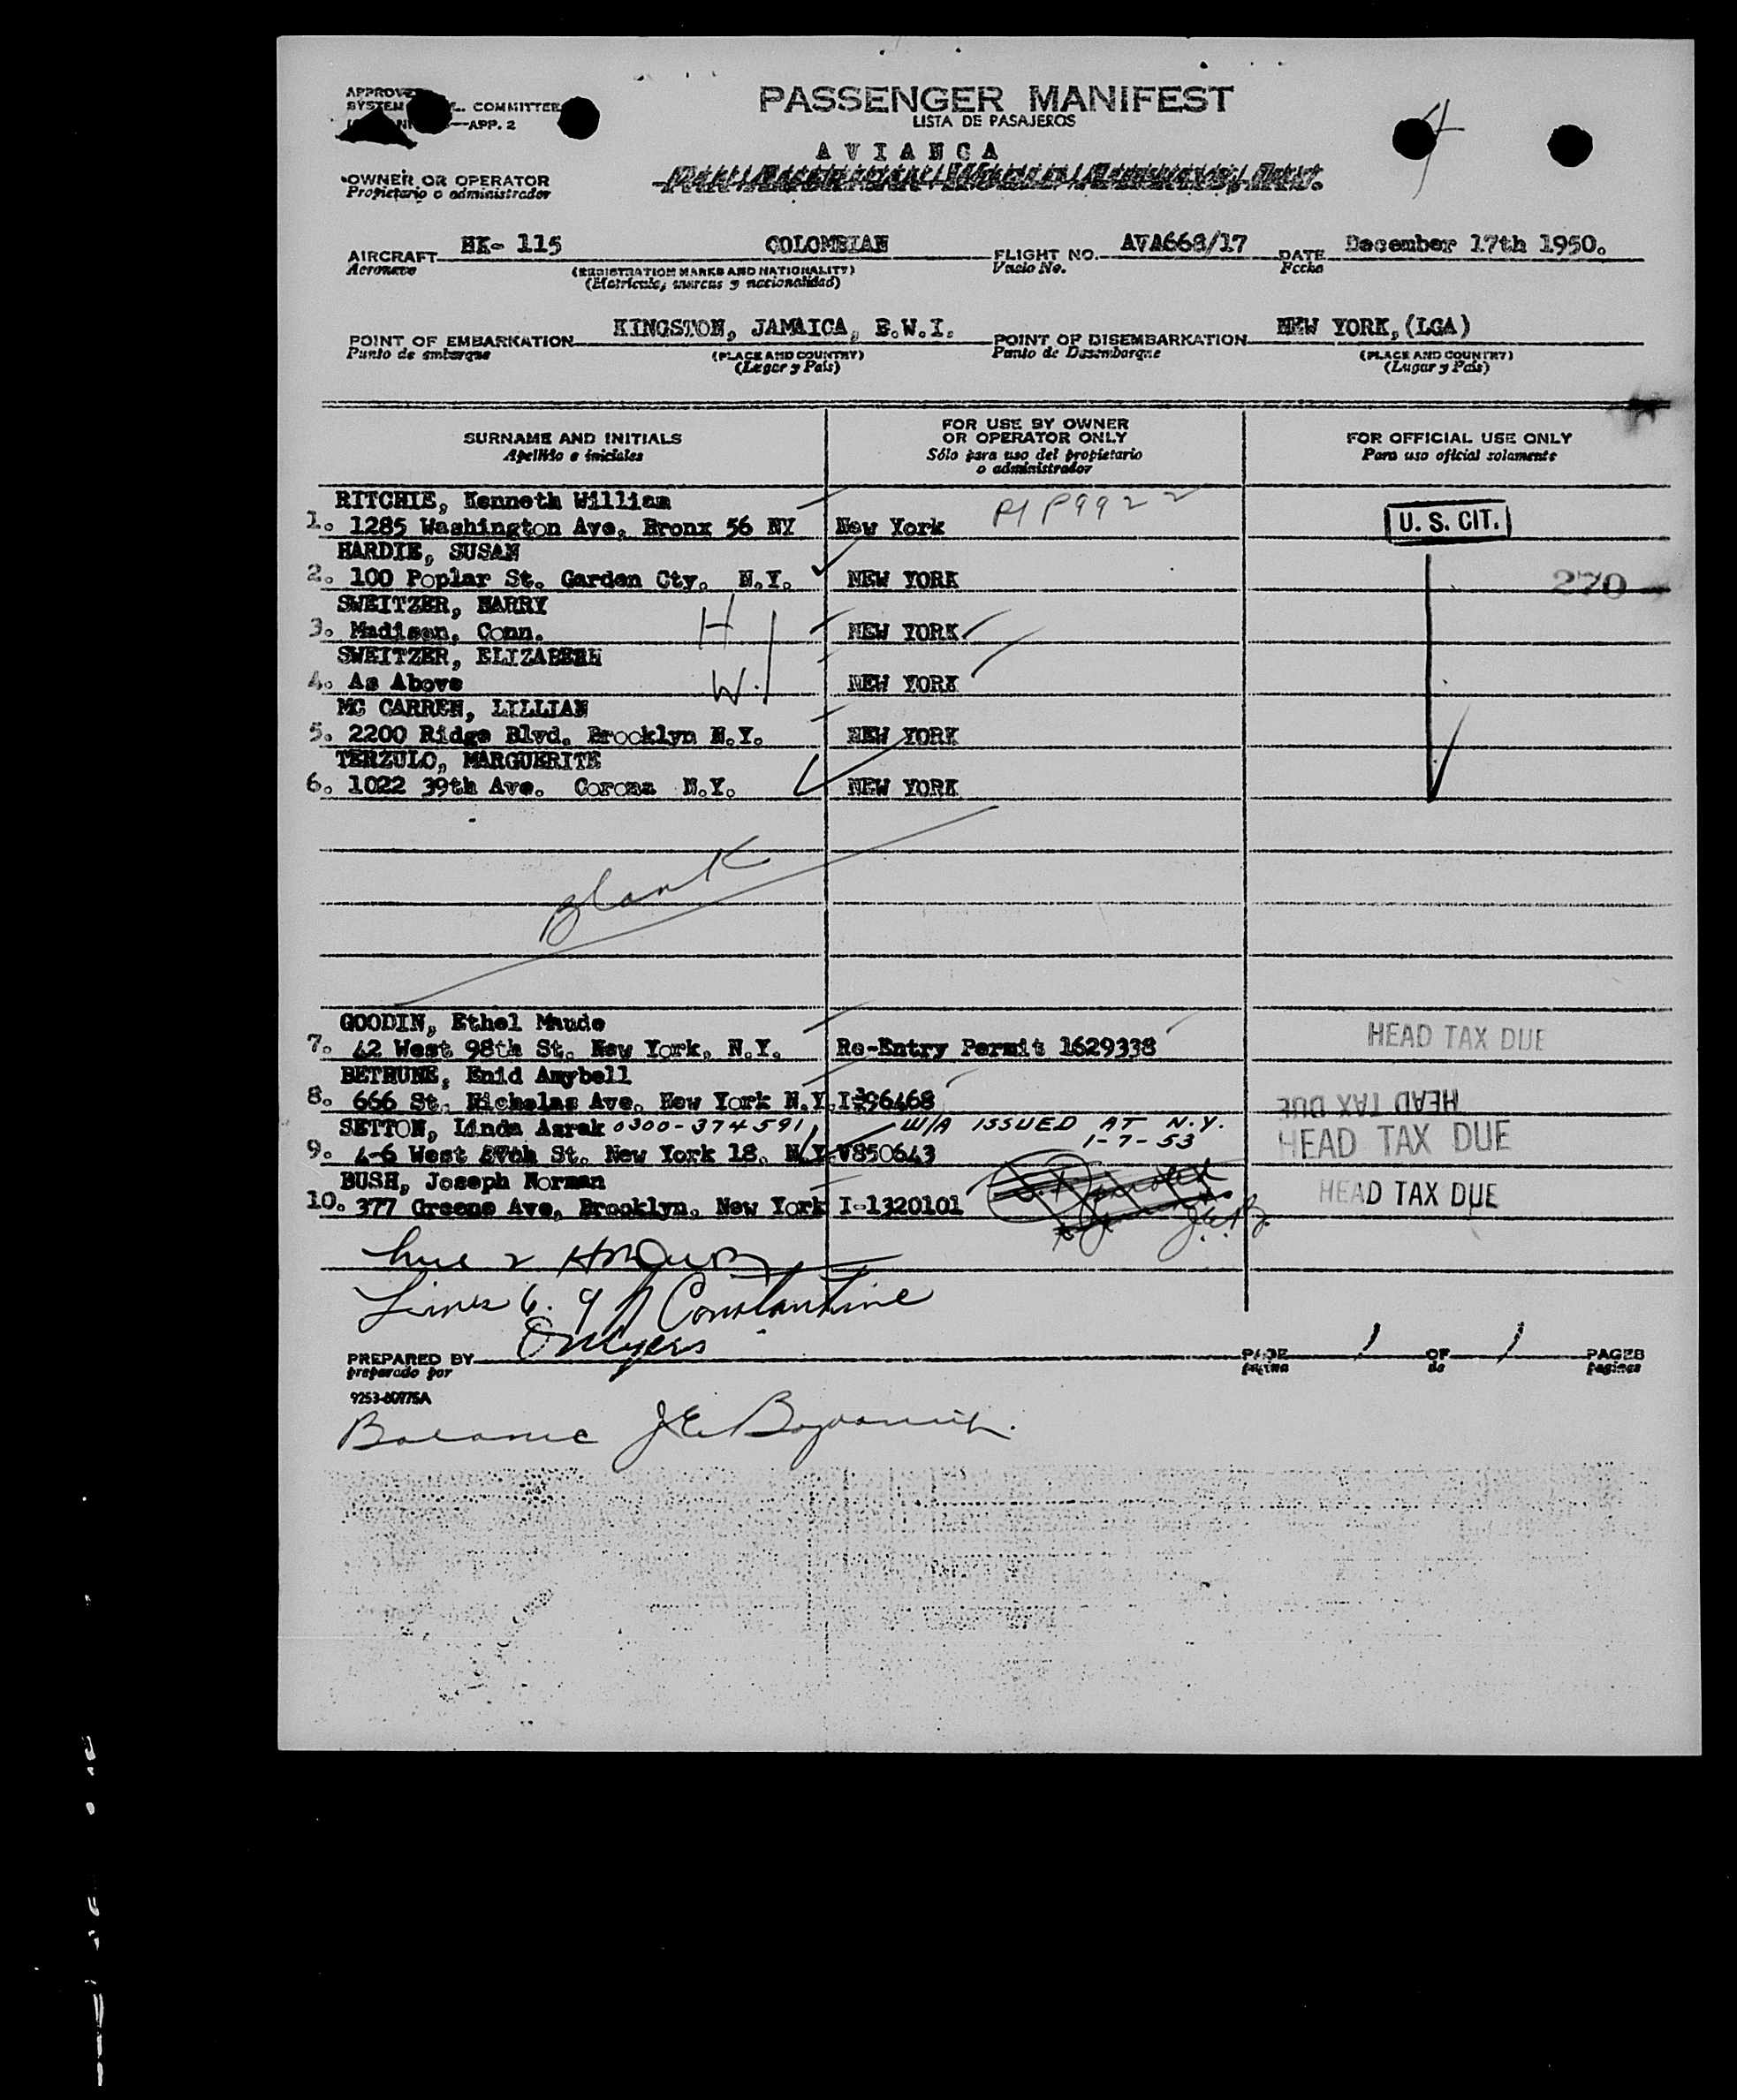 PASSENGER MANIFEST
LISTA DE PASAJEROS
COMMITTEE
—APP. 2
AVIANCA
OWNER OR OPERATOR
Propietario o administrador
AIRCRAFT HK- 115 COLOMBIAN FLIGHT NO. AVA668/17 DATE December 17th 1950.
Aeronave (REGISTRATION MARKS AND NATIONALITY) Vuelo No. Fecha
(Matrícula, marcas y nacionalidad)
POINT OF EMBARKATION KINGSTON, JAMAICA, B.W.I. POINT OF DISEMBARKATION NEW YORK,(LGA)
Punto de embarque (PLACE AND COUNTRY) Punto de Desembarque (PLACE AND COUNTRY)
(Lugar y País) (Lugar y País)
SURNAME AND INITIALS
Apellido e iniciales
FOR USE BY OWNER
OR OPERATOR ONLY
Sólo para uso del propietario
o administrador
FOR OFFICIAL USE ONLY
Para uso oficial solamente
RITCHIE, Kenneth William
1. 1285 Washington Ave, Bronx 56 NY New York U. S. CIT.
HARDIE, SUSAN
2. 100 Poplar St. Garden Cty. N.Y. NEW YORK 270
SWEITZER, HARRY
3. Madison, Conn. H NEW YORK
SWEITZER, ELIZABETH
4. As Above W. NEW YORK
MC CARREN, LILLIAN
5. 2200 Ridge Blvd. Brooklyn N.Y. NEW YORK
TERZULO, MARGUERITE
6. 1022 39th Ave. Corona N.Y. NEW YORK
Blank
GOODIN, Ethel Maude
7. 42 West 98th St. New York, N.Y. Re-Entry Permit 1629338 HEAD TAX DUE
BETHUNE, Enid Amybell
8. 666 St. Nicholas Ave. New York N.Y. HEAD TAX DUE
SETTON, Linda Azrak 0300-374591 W/A ISSUED AT N.Y.
1-7-53
9. 4-6 West St. New York 18. N.Y. V850643 HEAD TAX DUE
BUSH, Joseph Norman
10. 377 Greene Ave, Brooklyn. New York I-1320101 HEAD TAX DUE
Line 2
Lines 6. 9 Constantine
PREPARED BY PAGE 1 OF 1 PAGES
preparado por página de páginas
Balance